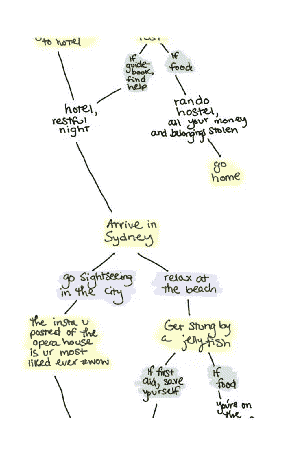 to hotel
if
guide-
book,
find
help
if
food
hotel,
restful
night
rando
hostel,
all your money
and belongings stolen
go
home
Arrive in
Sydney
go sightseeing
in the city
relax at
the beach
the insta u
posted of the
opera house
is ur most
liked ever #wow
Get stung by
a jellyfish
if first
aid, save
yourself
if
food
you're on
the